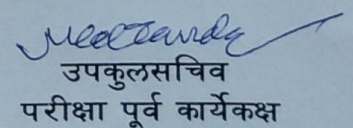 उपकुलसचिव
परीक्षा पूर्व कार्येकक्ष